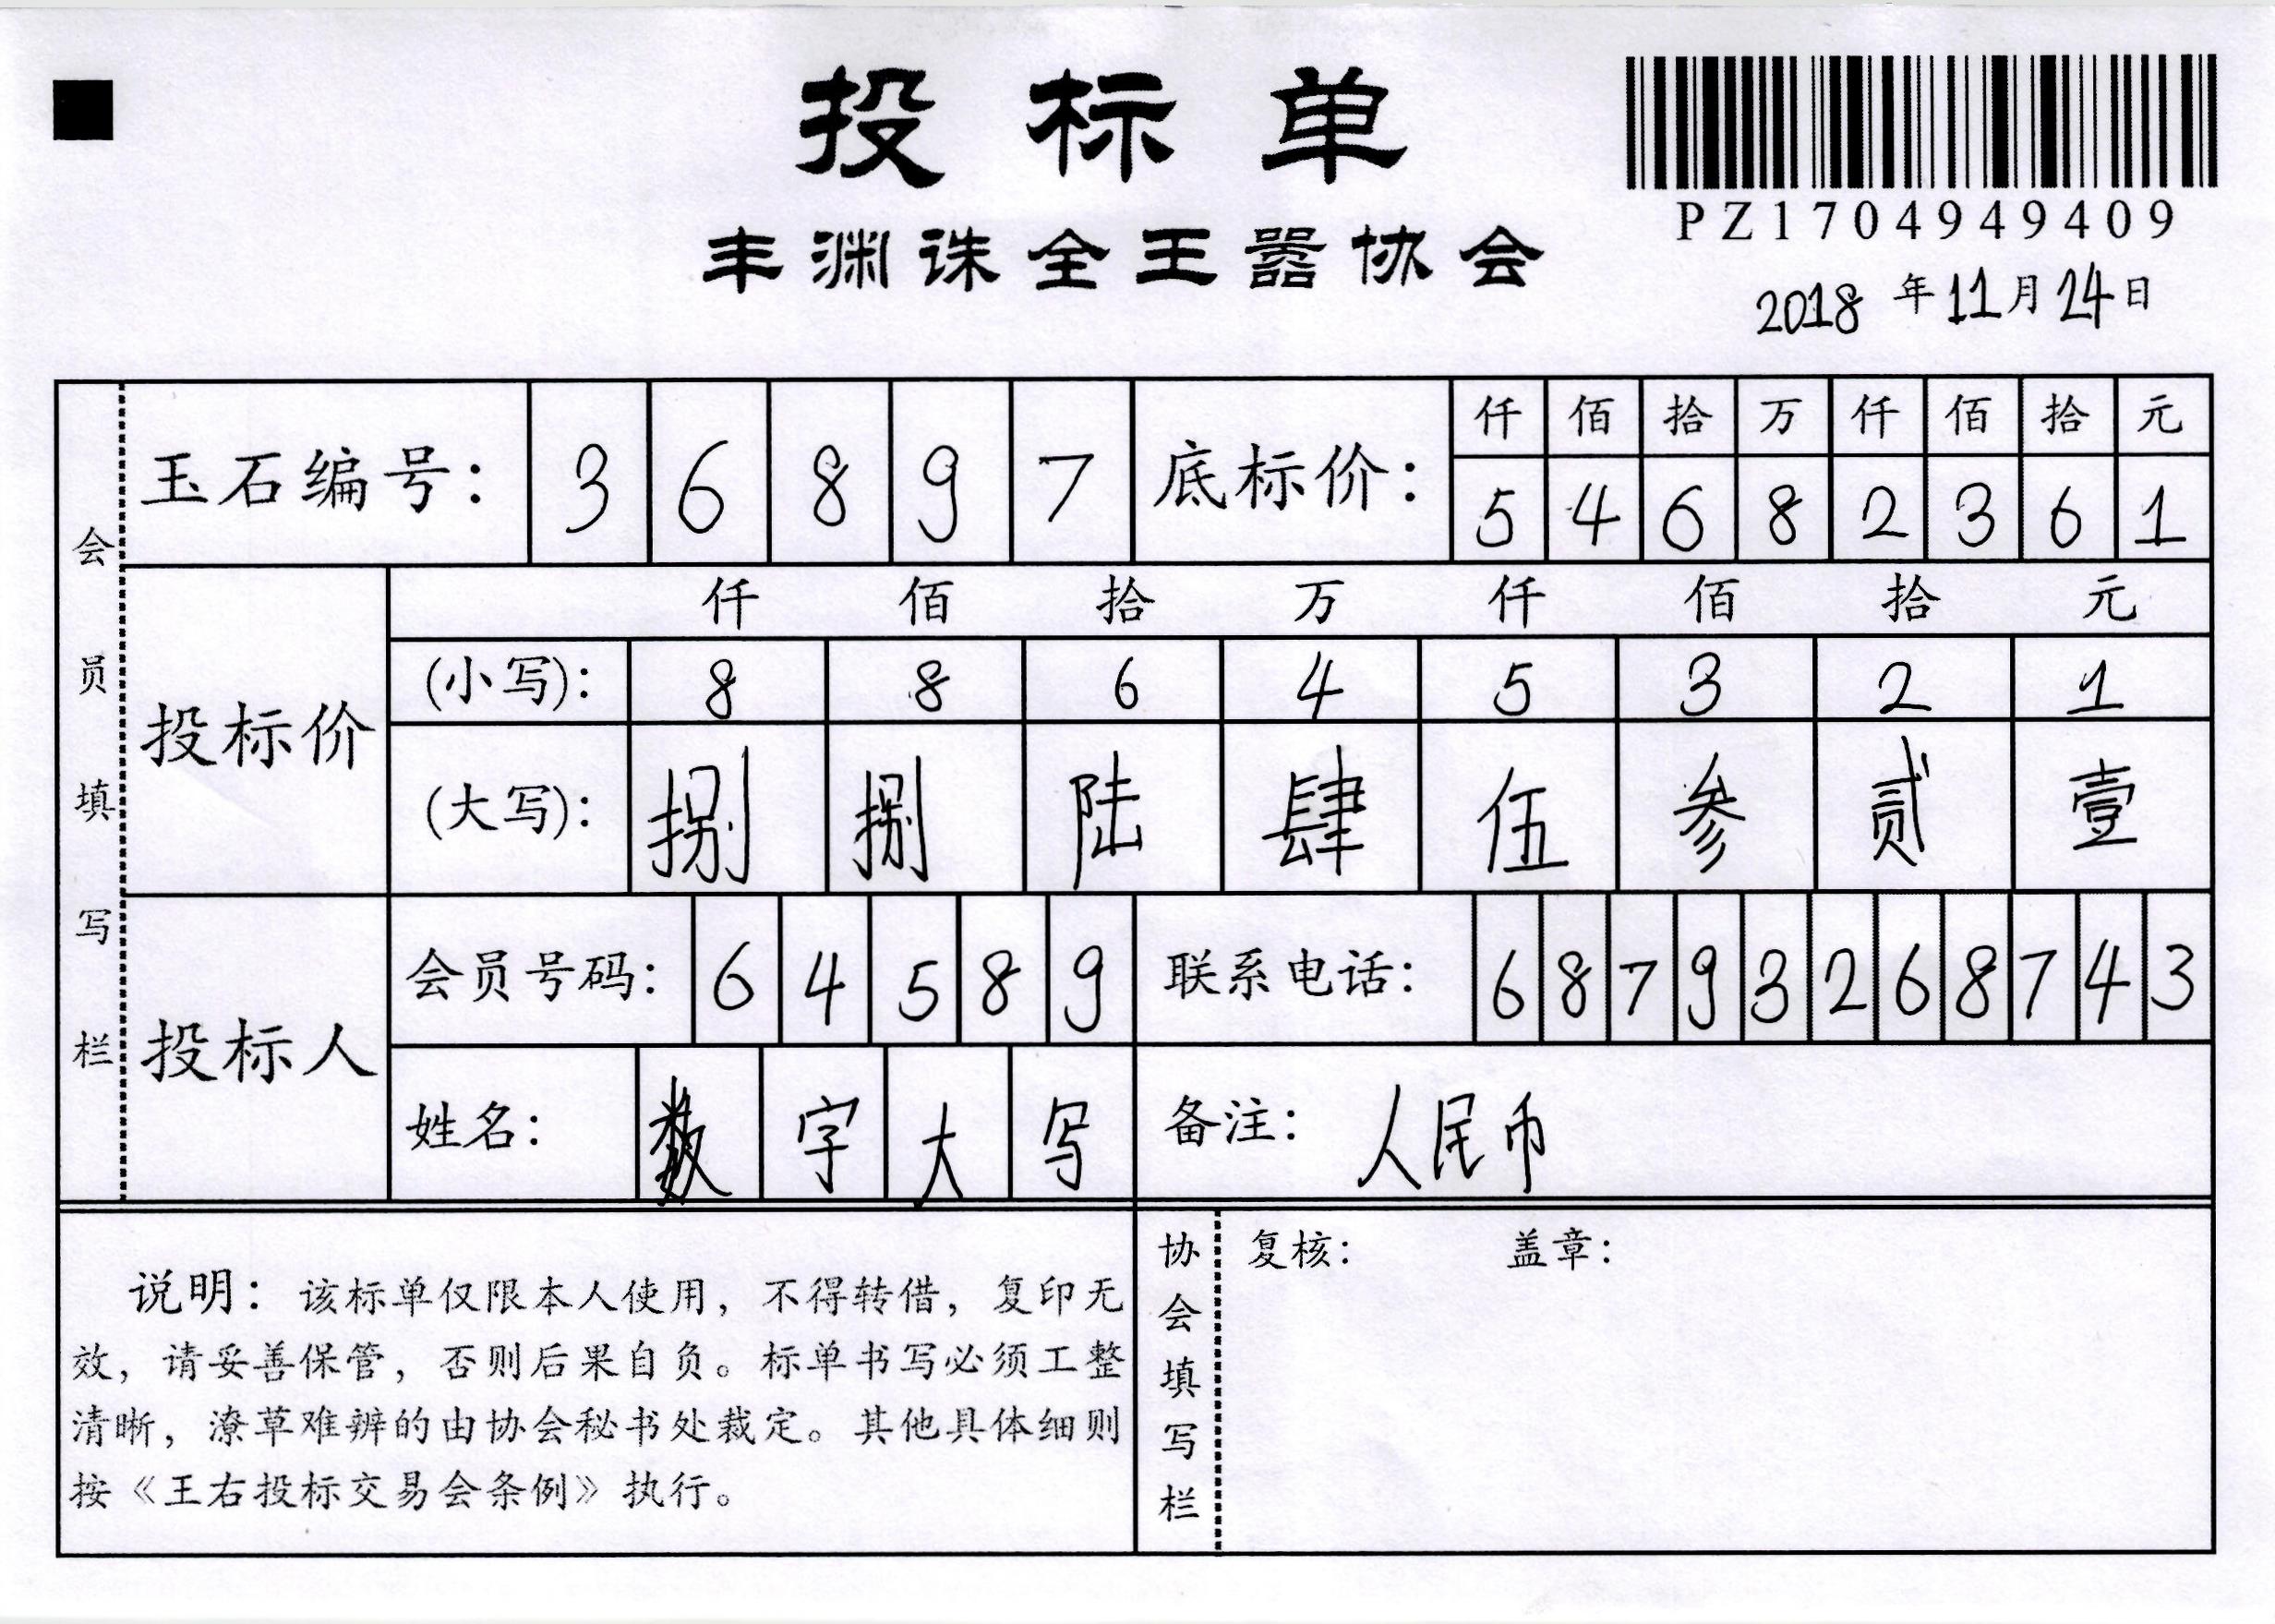 投标单
丰渊诛全王嚣协会
PZ1704949409
2018年11月24日
会员填写栏
玉石编号: 3 6 8 9 7
底标价: 仟 佰 拾 万 仟 佰 拾 元
5 4 6 8 2 3 6 1
投标价
仟 佰 拾 万 仟 佰 拾 元
(小写): 8 8 6 4 5 3 2 1
(大写): 捌 捌 陆 肆 伍 参 贰 壹
投标人
会员号码: 6 4 5 8 9
联系电话: 6 8 7 9 3 2 6 8 7 4 3
姓名: 数 字 大 写
备注: 人民币
说明: 该标单仅限本人使用，不得转借，复印无
效，请妥善保管，否则后果自负。标单书写必须工整
清晰，潦草难辨的由协会秘书处裁定。其他具体细则
按《王右投标交易会条例》执行。
协会填写栏
复核: 盖章: